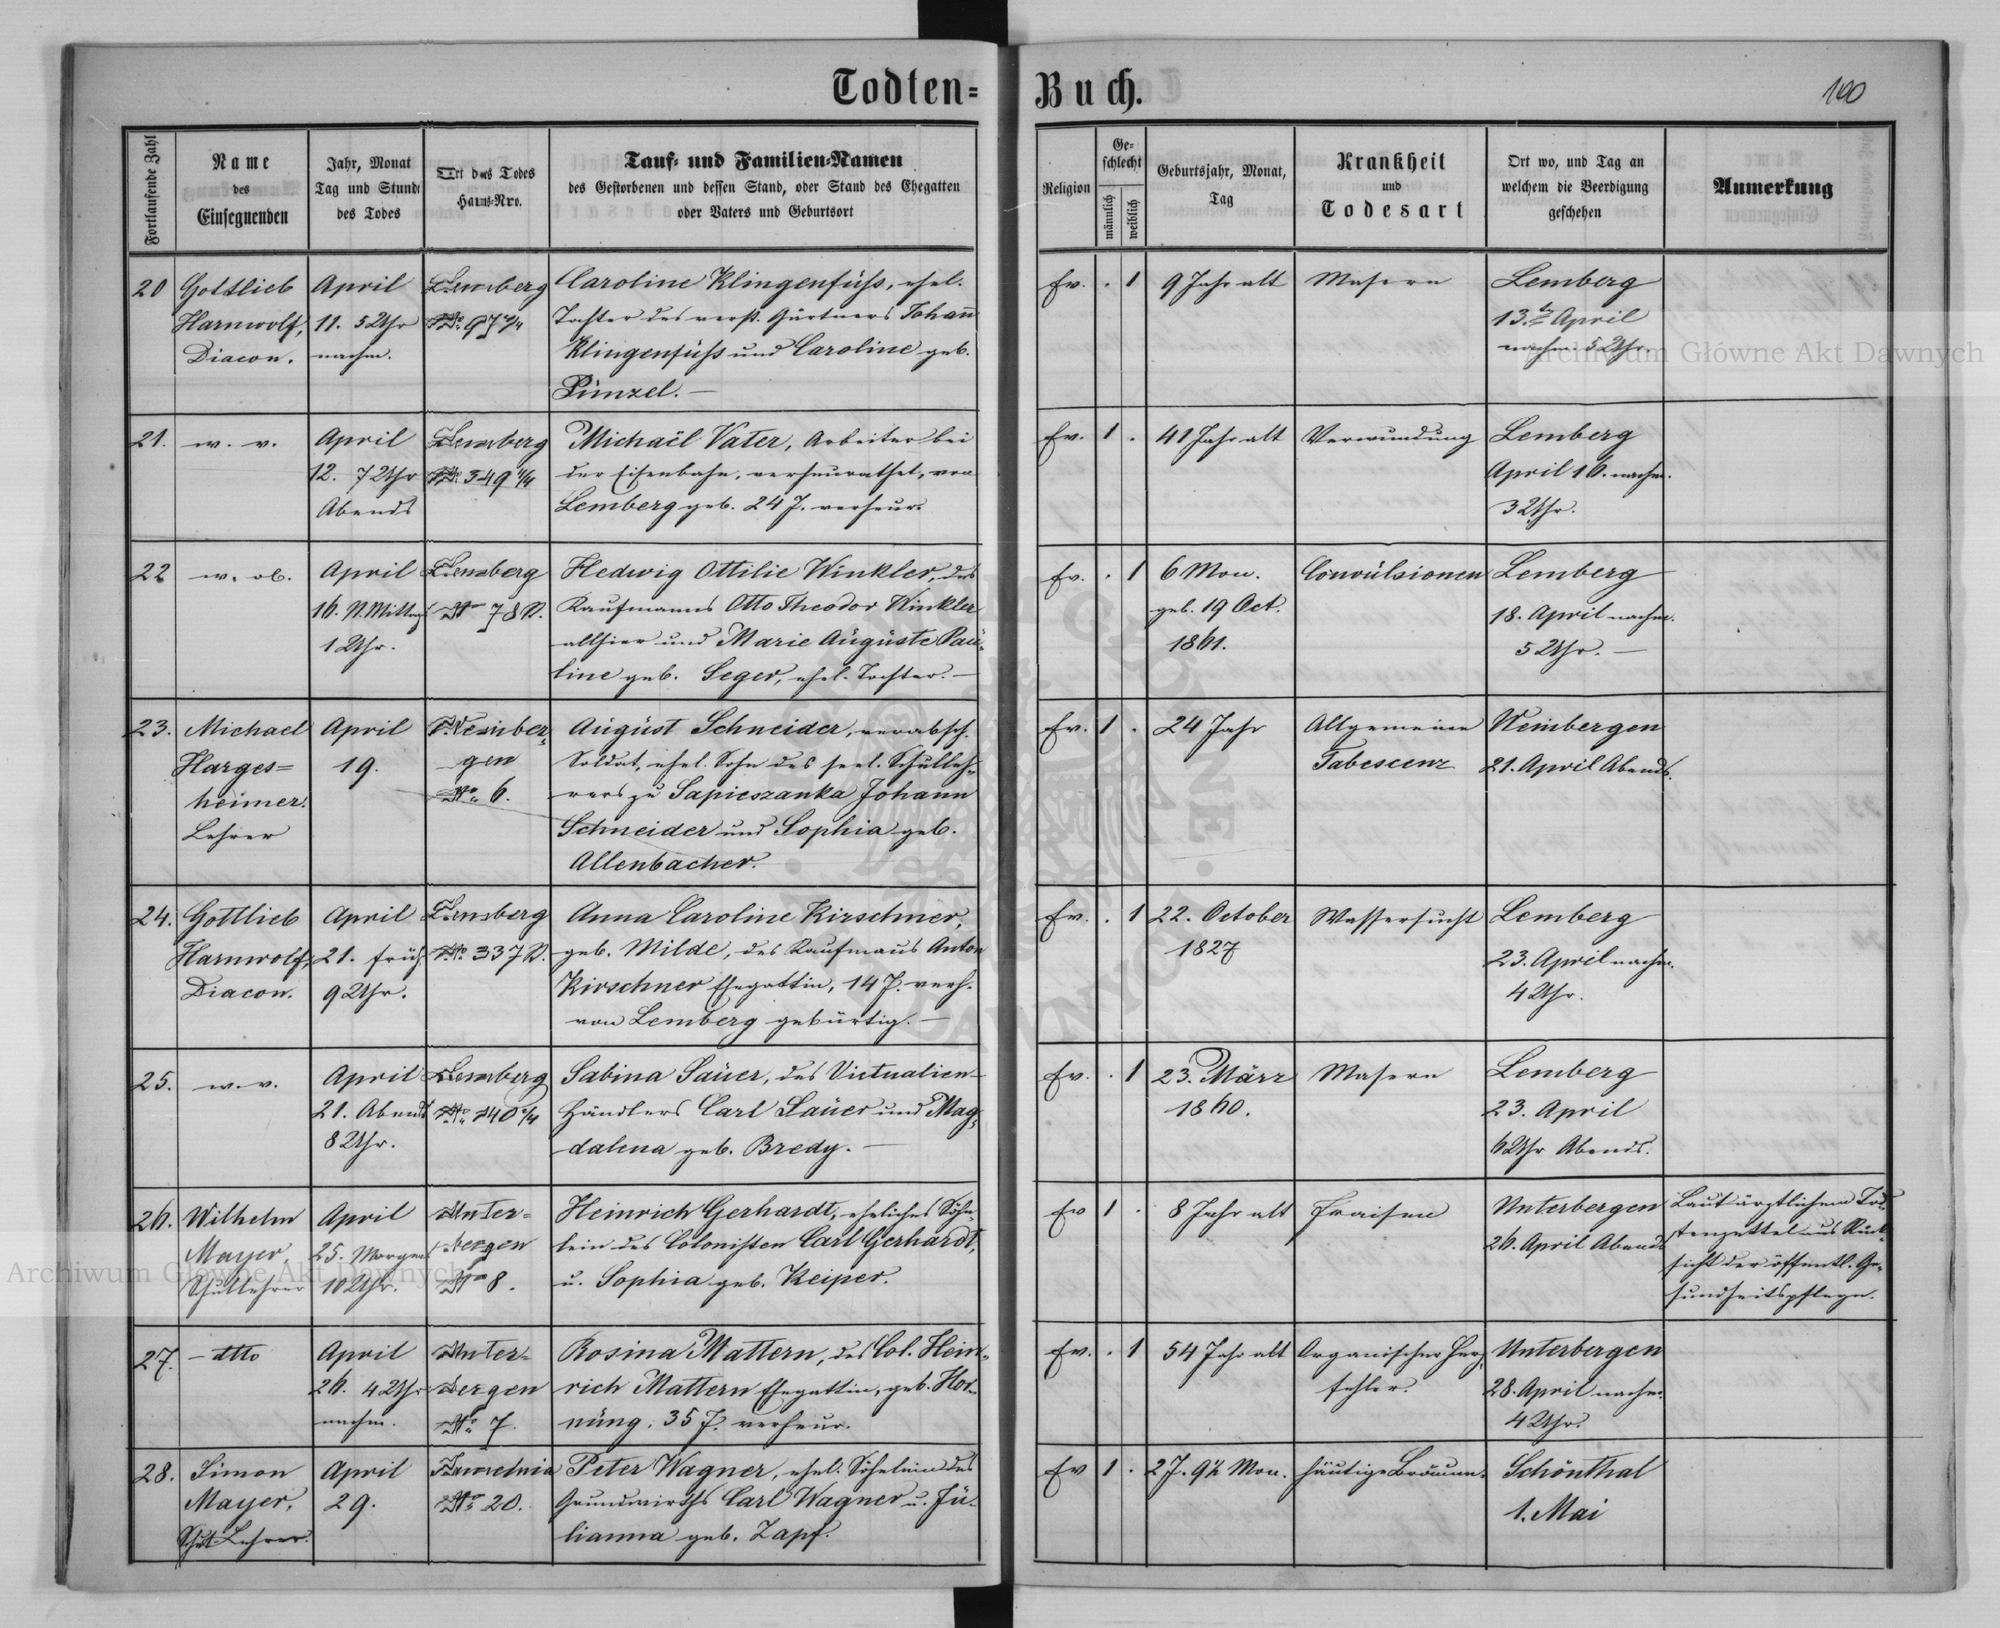 Todten-
Buch.
100
Fortlaufende Zahl
Name
des
Einsegnenden
Jahr, Monat
Tag und Stunde
des Todes
Ort des Todes
Haus-Nro.
Tauf- und Familien-Namen
des Gestorbenen und dessen Stand, oder Stand des Ehegatten
oder Vaters und Geburtsort
Religion
Geschlecht
männlich
weiblich
Geburtsjahr, Monat,
Tag
Krankheit
und
Todesart
Ort wo, und Tag an
welchem die Beerdigung
geschehen
Anmerkung
20
Gottlieb
Harnwolf,
Diacon.
April
11. 5 Uhr
nachm.
Lemberg
Caroline Klingenfüss, ehel.
Tochter des verst. Gärtners Johann
Klingenfüss und Caroline geb.
Pünzel. —
Ev. . 1
9 Jahr alt
Masern
Lemberg
13. April
nachm. 5 Uhr.
21.
w. v.
April
12. 7 Uhr
Abends
Lemberg
No. 349 4/4
Michaël Vater, Arbeiter bei
der Eisenbahn, verheurathet, von
Lemberg geb. 24 J. verheur.
Ev. 1 .
41 Jahr alt
Verwundung
Lemberg
April 16. nachm.
3 Uhr.
22
w. ob.
April
16. N. Mittag
1 Uhr.
Lemberg
No 78
Hedwig Ottilie Winkler, des
Kaufmanns Otto Theodor Winkler
allhier und Marie Auguste Pau-
line geb. Seger, ehel. Tochter. —
Ev. . 1
6 Mon.
geb. 19 Oct.
1861.
Convulsionen
Lemberg
18. April nachm.
5 Uhr. —
23.
Michael
Harges=
heimer.
Lehrer
April
19.
Weinber-
gen
No. 6.
August Schneider, verabsch.
Soldat, ehel. Sohn des seel. Schulleh-
rers zu Sapieszanka Johann
Schneider und Sophia geb.
Allenbacher.
Ev. 1 .
24 Jahr
Allgemeine
Tabescenz
Weinbergen
21. April Abends.
24.
Gottlieb
Harnwolf,
Diacon.
April
21. früh
9 Uhr.
Lemberg
No. 337
Anna Caroline Kirschner,
geb. Milde, des Kaufmans Anton
Kirschner Ehegattin, 14 J. verh.
von Lemberg gebürtig. —
Ev. . 1
22. October
1827
Wassersucht
Lemberg
23. April nachm.
4 Uhr.
25.
w. v.
April
21. Abend
8 Uhr.
Lemberg
Sabina Sauer, des Victualien-
Händlers Carl Sauer und Mag-
dalena geb. Bredy. —
Ev. . 1
23. März
1860.
Masern
Lemberg
23. April
6 Uhr Abends.
26.
Wilhelm
Mayer,
Schullehrer
April
25. Morgens
10 Uhr.
Unter-
bergen
No 8.
Heinrich Gerhardt, eheliches Söhn-
lein des Colonisten Carl Gerhardt,
u. Sophia geb. Keiper.
Ev 1 .
8 Jahr alt
Fraisen
Unterbergen
26. April Abends
Laut ärztlichem Tod-
tenzettel aus Rück-
sicht der öffentl. Ge-
sundheitspflege.
27.
— dtto
April
26. 4 Uhr
nachm.
Unter-
bergen
No. 7.
Rosina Mattern, des Col. Hein-
rich Mattern Ehegattin, geb. Hor-
nung. 35 J. verheur.
Ev. . 1
54 Jahr alt
Organischer Herz-
fehler.
Unterbergen
28. April nachm.
4 Uhr.
28.
Simon
Mayer,
Schul Lehrer.
April
29.
No. 20.
Peter Wagner, ehel. Söhnlein des
Grundwirths Carl Wagner u. Ju-
lianna geb. Zapf.
Ev 1 .
2 J. 9½ Mon.
häutige Bräune.
Schönthal
1. Mai
Archiwum Główne Akt Dawnych
Archiwum Główne Akt Dawnych